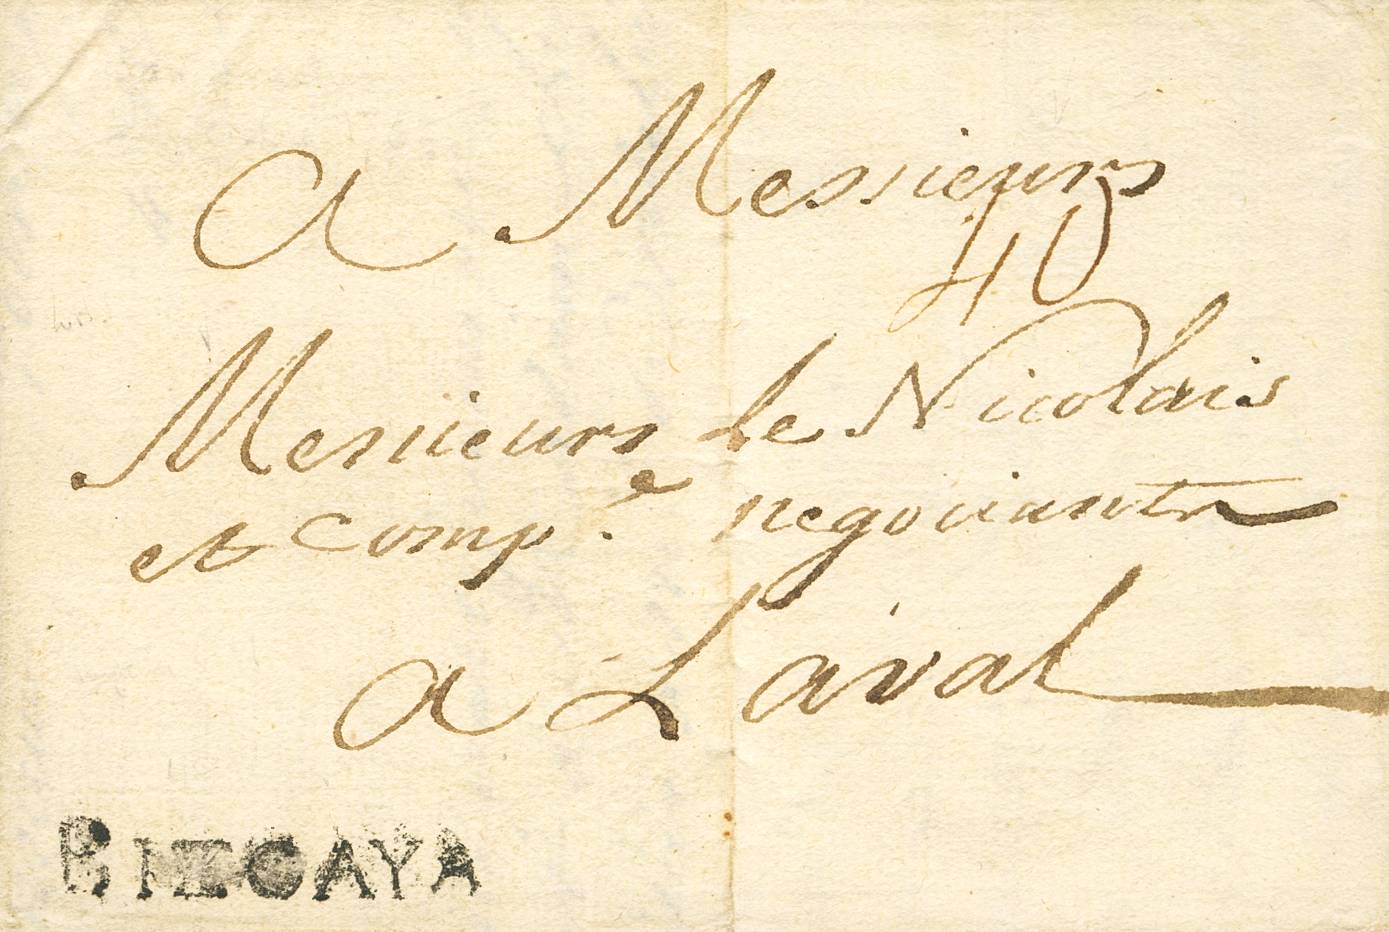 A Messieurs
40
Messieurs Le Nicolais
et Comp.e negociants
a Laval
BIZCAYA